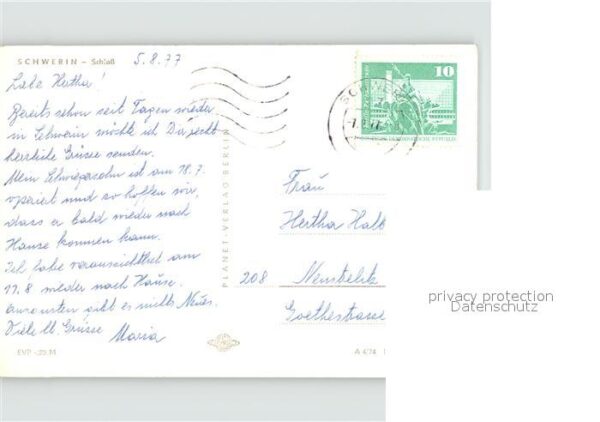 SCHWERIN – Schloß
5.8.77
Liebe Hertha!
Bereits schon seit Tagen wieder
in Schwerin möchte ich Dir recht
herzliche Grüsse senden.
Mein Schwiegersohn ist am 18.7.
operiert und so hoffen wir,
dass er bald wieder nach
Hause kommen kann.
Ich fahre voraussichtlich am
11.8 wieder nach Hause.
Ansonsten gibt es nichts Neues.
Viele Grüsse
Maria
EVP -,25 M
PLANET-VERLAG BERLIN
SCHWERIN
10
DEUTSCHE DEMOKRATISCHE REPUBLIK
Frau
Hertha
208 Neustrelitz
Goethestrasse
A 4/74
privacy protection
Datenschutz